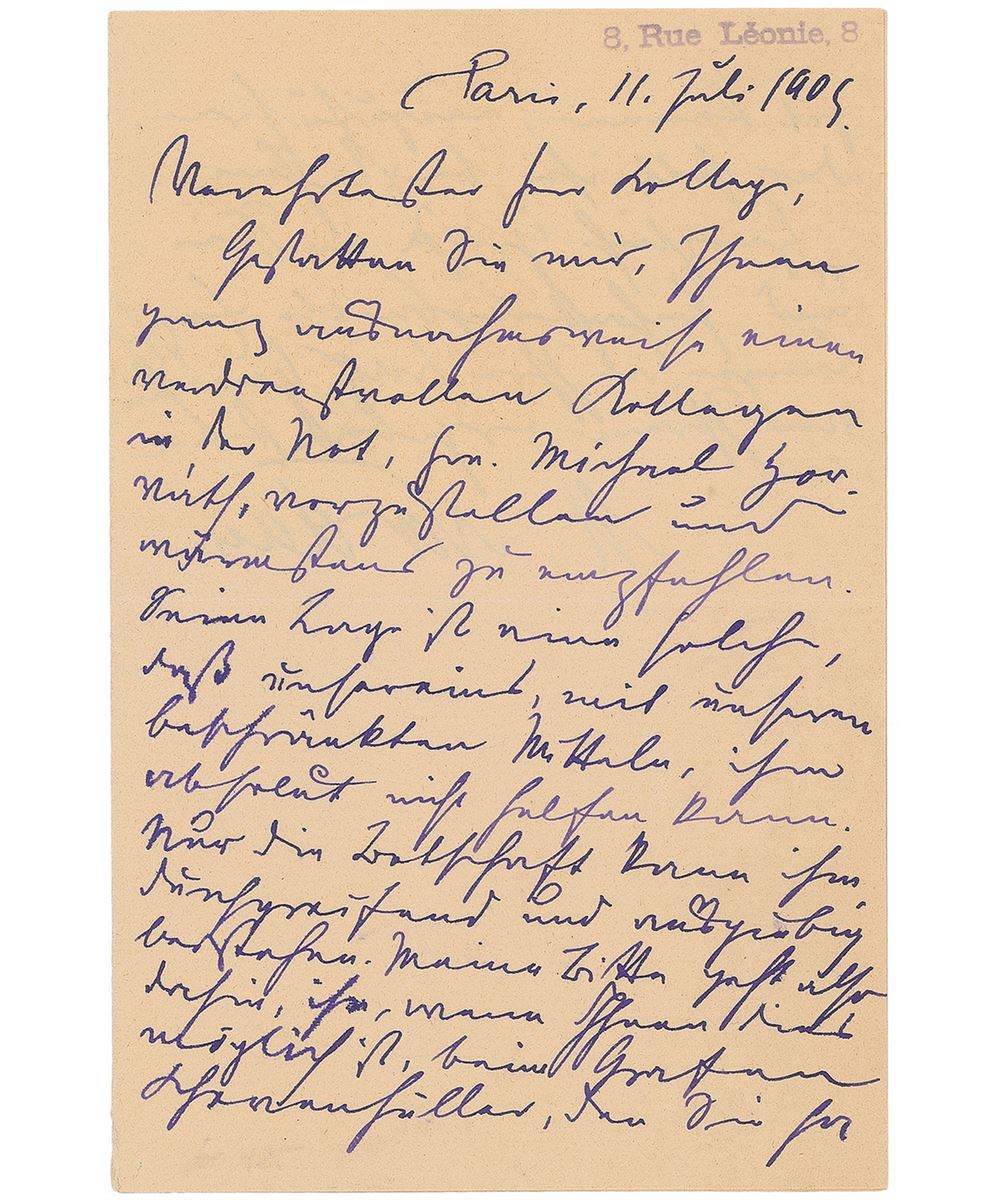 8, Rue Léonie, 8
Paris, 11. Juli 1905.
Verehrtester Herr Kollege,
Gestatten Sie mir, Ihnen
ganz ausnahmsweise einen
verdienstvollen Kollegen
in der Not, Hrn. Michael Hor-
váth, vorzustellen und
wärmstens zu empfehlen.
Seine Lage ist eine solche,
daß unsereins, mit unseren
beschränkten Mitteln, ihm
absolut nicht helfen kann.
Nur die Botschaft kann ihm
durchgreifend und ausgiebig
beistehen. Meine Bitte geht also
dahin, ihn, wenn Ihnen dies
möglich ist, beim Grafen
Khevenhüller, den Sie ja